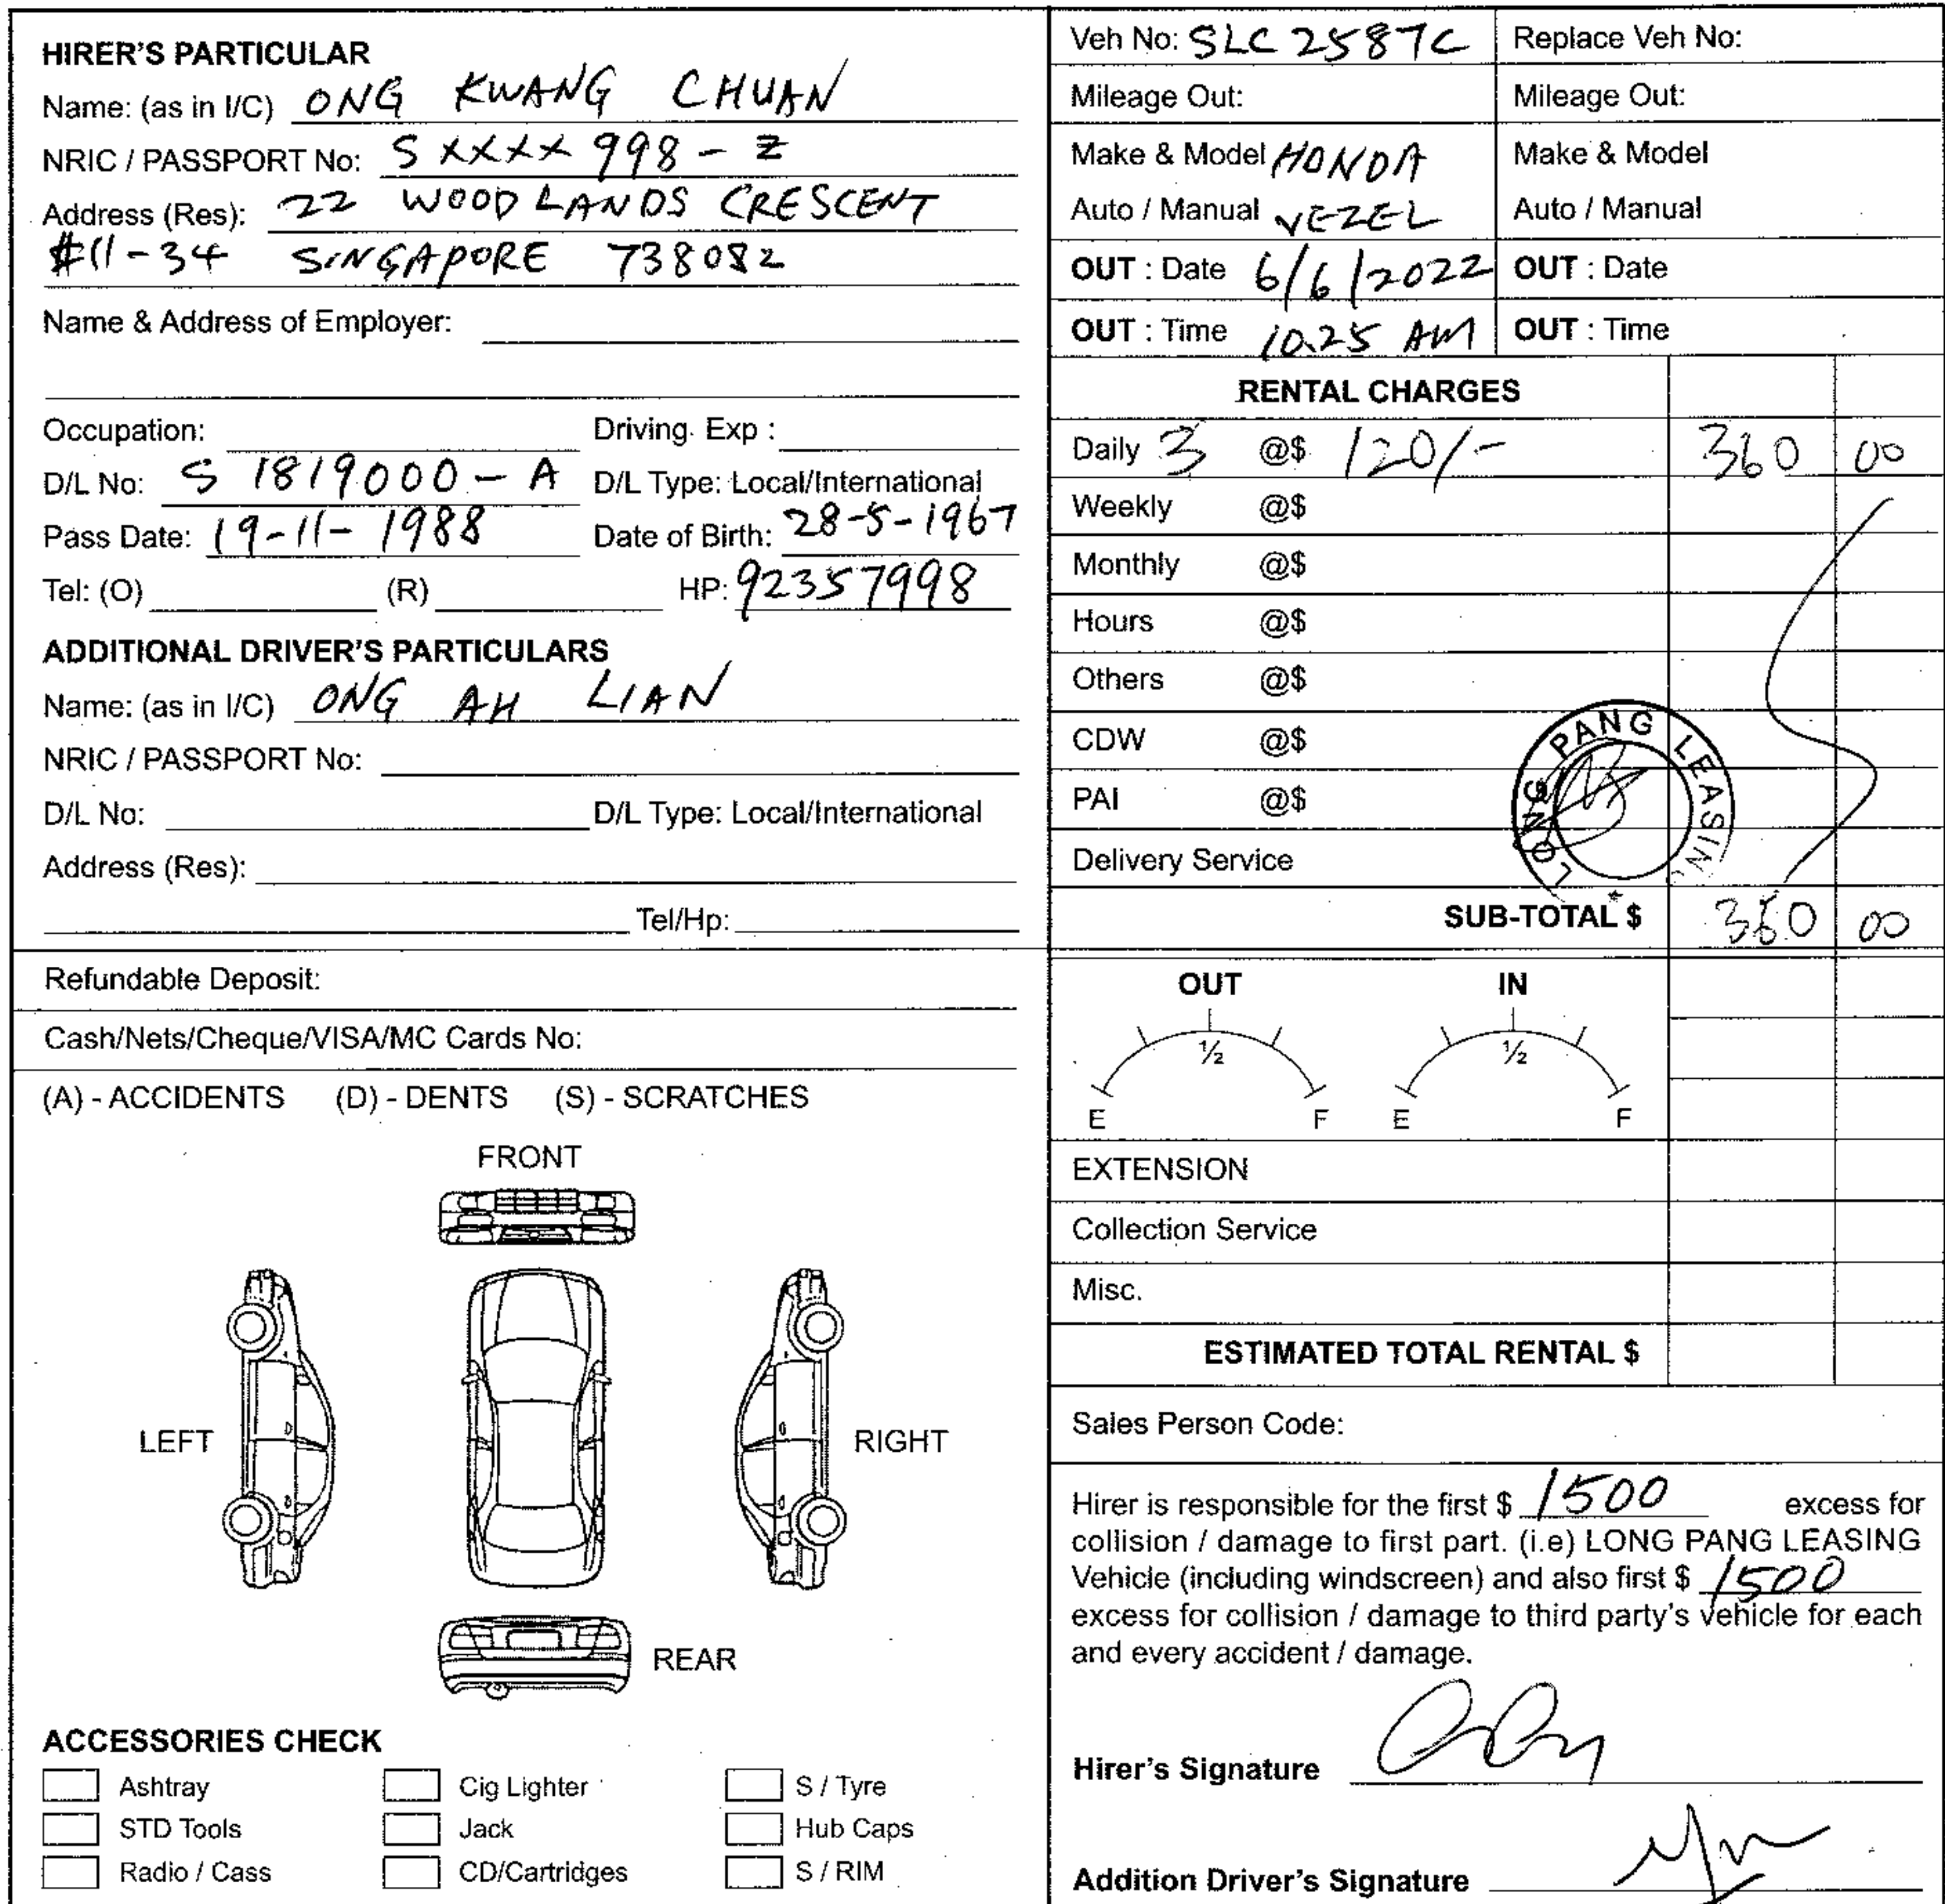 HIRER'S PARTICULAR
Name: (as in I/C) ONG KWANG CHUAN
NRIC / PASSPORT No: SXXXX998-Z
Address (Res): 22 WOODLANDS CRESCENT
#11-34 SINGAPORE 738082
Name & Address of Employer:
Occupation: Driving Exp :
D/L No: S 1819000-A D/L Type: Local/International
Pass Date: 19-11-1988 Date of Birth: 28-5-1967
Tel: (O) (R) HP: 92357998
ADDITIONAL DRIVER'S PARTICULARS
Name: (as in I/C) ONG AH LIAN
NRIC / PASSPORT No:
D/L No: D/L Type: Local/International
Address (Res):
Tel/Hp:
Refundable Deposit:
Cash/Nets/Cheque/VISA/MC Cards No:
(A) - ACCIDENTS (D) - DENTS (S) - SCRATCHES
FRONT
LEFT
RIGHT
REAR
ACCESSORIES CHECK
Ashtray Cig Lighter S / Tyre
STD Tools Jack Hub Caps
Radio / Cass CD/Cartridges S / RIM
Veh No: SLC 2587C Replace Veh No:
Mileage Out: Mileage Out:
Make & Model HONDA Make & Model
Auto / Manual VEZEL Auto / Manual
OUT : Date 6/6/2022 OUT : Date
OUT : Time 10.25 AM OUT : Time
RENTAL CHARGES
Daily 3 @$ 120/- 360 00
Weekly @$
Monthly @$
Hours @$
Others @$
CDW @$
PAI @$
Delivery Service
LONG PANG LEASING
SUB-TOTAL $ 360 00
OUT IN
½ ½
E F E F
EXTENSION
Collection Service
Misc.
ESTIMATED TOTAL RENTAL $
Sales Person Code:
Hirer is responsible for the first $ 1500 excess for
collision / damage to first part. (i.e) LONG PANG LEASING
Vehicle (including windscreen) and also first $ 1500
excess for collision / damage to third party's vehicle for each
and every accident / damage.
Hirer's Signature
Addition Driver's Signature